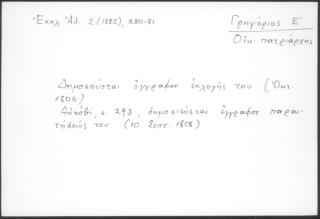 Ἐκκλ. Ἀλ. 2 (1882), 280-81
Γρηγόριος Ε΄
Οἰκ. πατριάρχης
Δημοσιεύεται ἔγγραφον ἐκλογῆς του (Ὀκτ.
1806)
Αὐτόθι, σ. 293, δημοσιεύεται ἔγγραφον παραι-
τήσεώς του (10 Σεπτ. 1808)